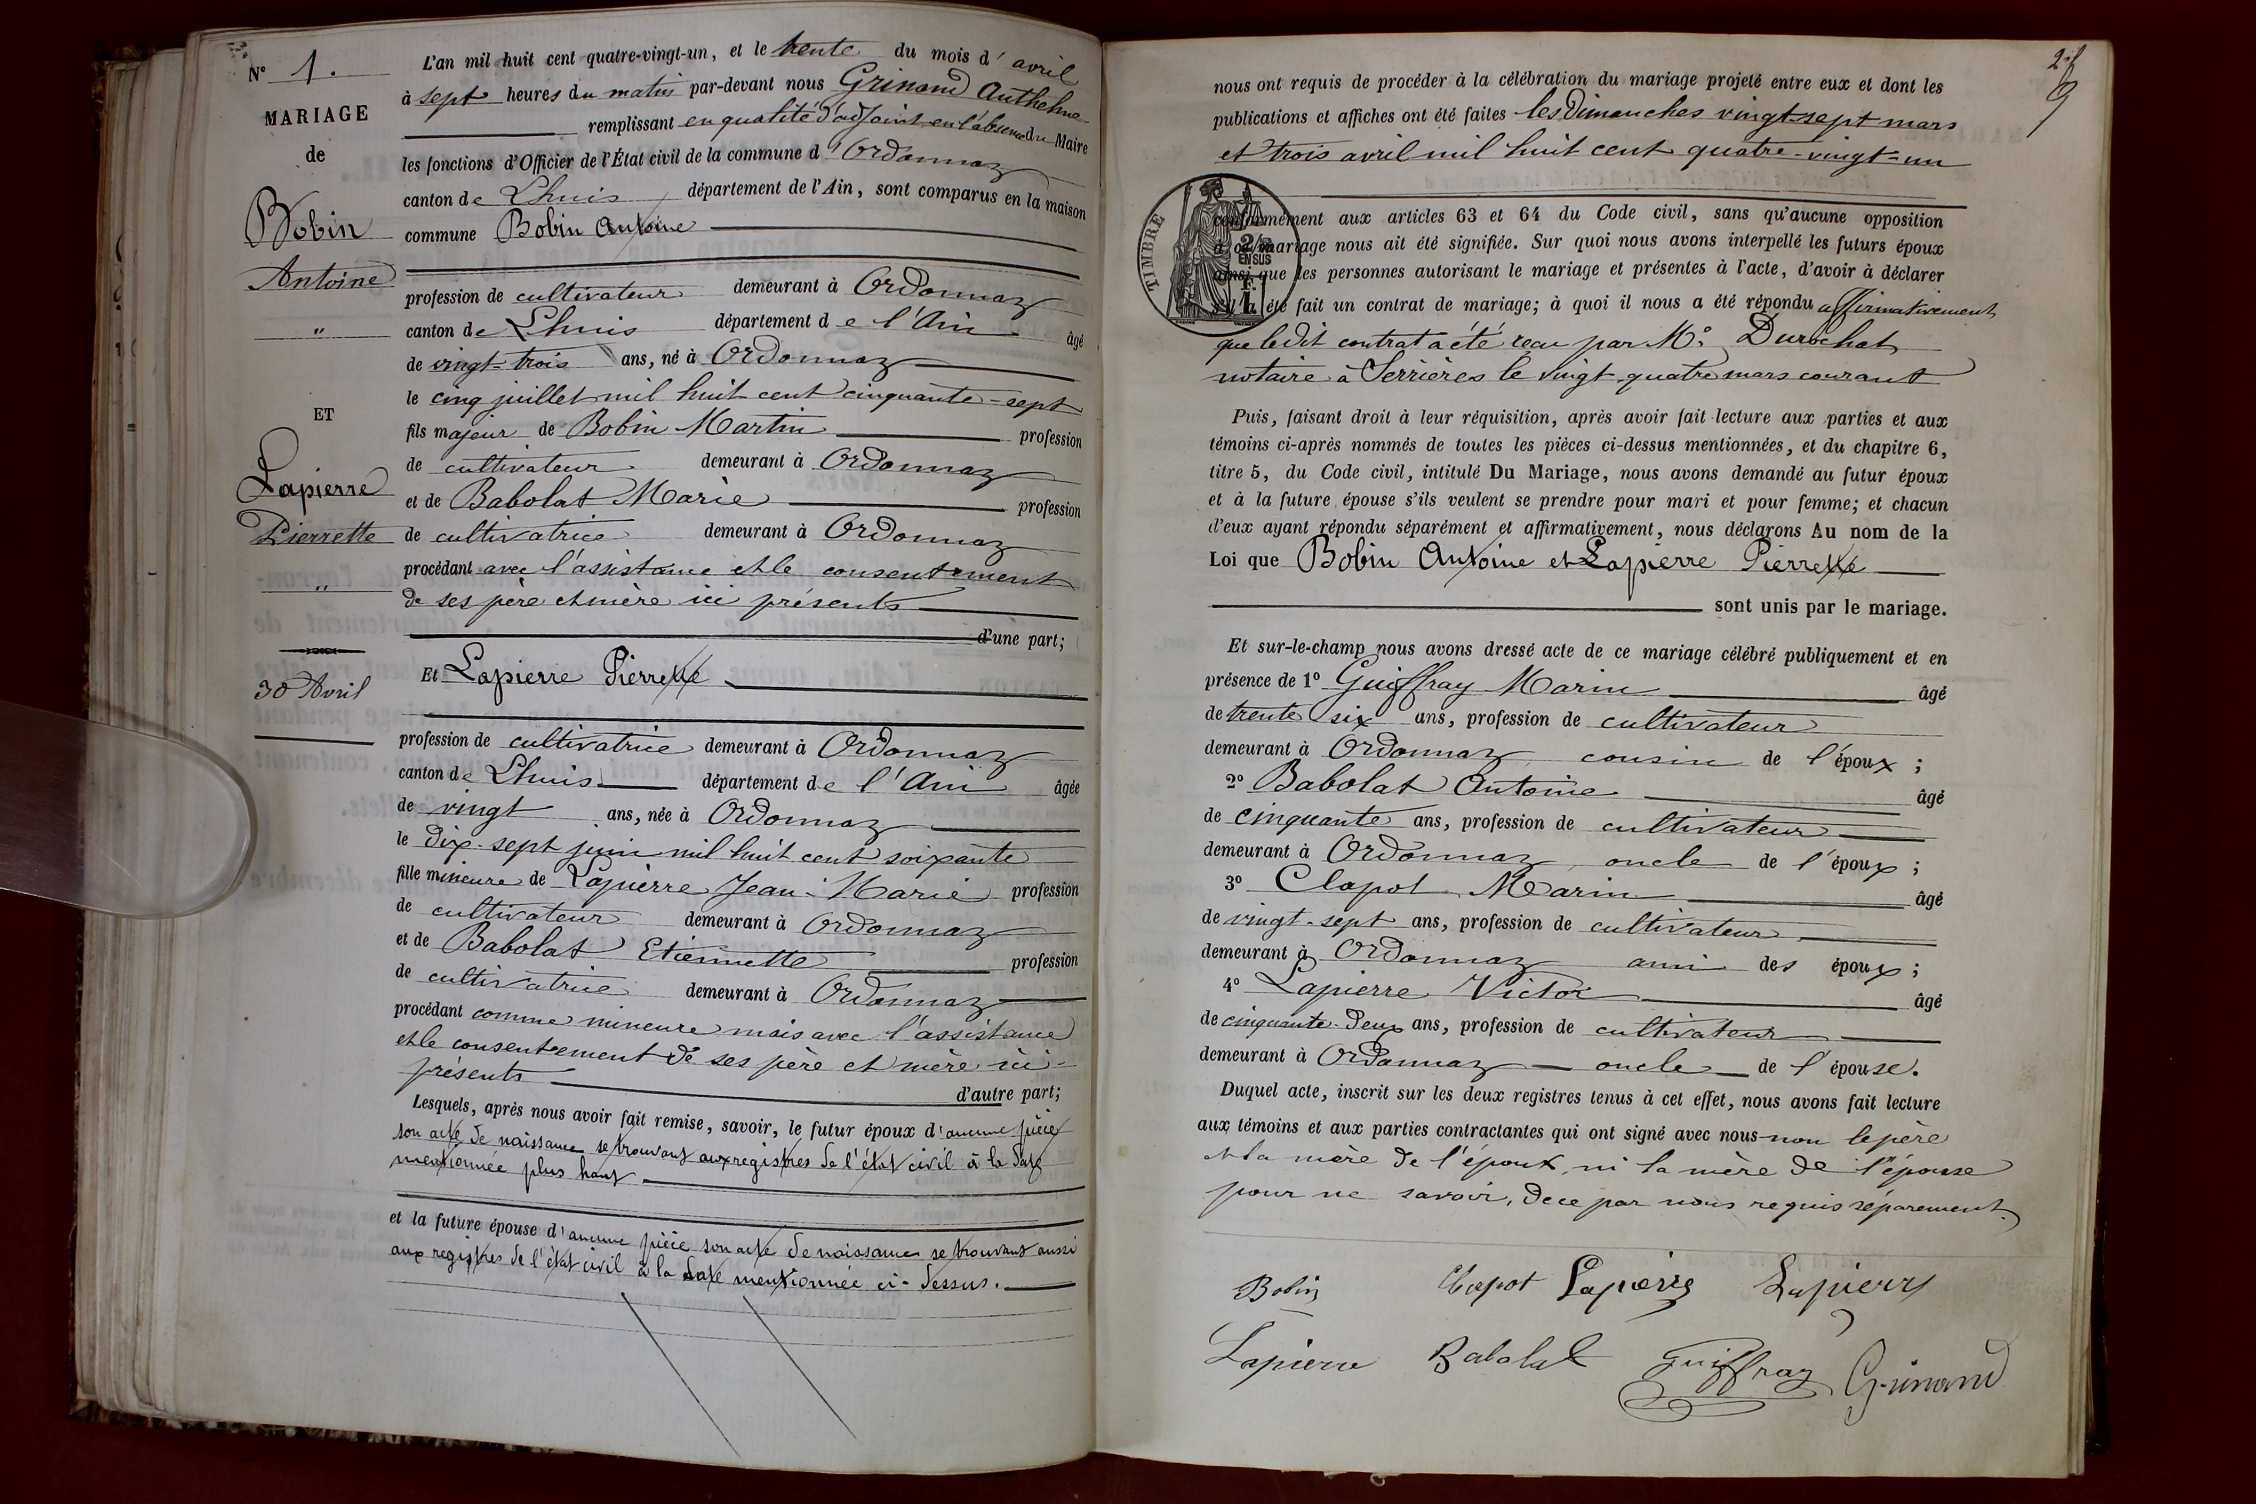 N° 1.
MARIAGE
de
Bobin
Antoine
"
ET
Lapierre
Pierrette
"
30 Avril
L'an mil huit cent quatre-vingt-un, et le trente du mois d'avril
à sept heures du matin par-devant nous Grinand Anthelme
remplissant en qualité d'adjoint en l'absence du Maire
les fonctions d'Officier de l'État civil de la commune d'Ordonnaz
canton de Lhuis département de l'Ain, sont comparus en la maison
commune Bobin Antoine
profession de cultivateur demeurant à Ordonnaz
canton de Lhuis département de l'Ain âgé
de vingt-trois ans, né à Ordonnaz
le cinq juillet mil huit cent cinquante-sept
fils majeur de Bobin Martin profession
de cultivateur demeurant à Ordonnaz
et de Babolat Marie profession
de cultivatrice demeurant à Ordonnaz
procédant avec l'assistance et le consentement
de ses père et mère ici présents
d'une part;
Et Lapierre Pierrette
profession de cultivatrice demeurant à Ordonnaz
canton de Lhuis département de l'Ain âgée
de vingt ans, née à Ordonnaz
le dix-sept juin mil huit cent soixante
fille mineure de Lapierre Jean-Marie profession
de cultivateur demeurant à Ordonnaz
et de Babolat Etiennette profession
de cultivatrice demeurant à Ordonnaz
procédant comme mineure mais avec l'assistance
et le consentement de ses père et mère ici-
présents d'autre part;
Lesquels, après nous avoir fait remise, savoir, le futur époux d'aucune pièce
son acte de naissance se trouvant aux registres de l'état civil à la date
mentionnée plus haut
et la future épouse d'aucune pièce son acte de naissance se trouvant aussi
aux registres de l'état civil à la date mentionnée ci-dessus.
2 f
9
nous ont requis de procéder à la célébration du mariage projeté entre eux et dont les
publications et affiches ont été faites les Dimanches vingt-sept mars
et trois avril mil huit cent quatre-vingt-un
TIMBRE
2/10
EN SUS
1 F.
conformément aux articles 63 et 64 du Code civil, sans qu'aucune opposition
à ce mariage nous ait été signifiée. Sur quoi nous avons interpellé les futurs époux
ainsi que les personnes autorisant le mariage et présentes à l'acte, d'avoir à déclarer
s'il a été fait un contrat de mariage; à quoi il nous a été répondu affirmativement
que ledit contrat a été reçu par Me Durochat
notaire à Serrières le vingt quatre mars courant
Puis, faisant droit à leur réquisition, après avoir fait lecture aux parties et aux
témoins ci-après nommés de toutes les pièces ci-dessus mentionnées, et du chapitre 6,
titre 5, du Code civil, intitulé Du Mariage, nous avons demandé au futur époux
et à la future épouse s'ils veulent se prendre pour mari et pour femme; et chacun
d'eux ayant répondu séparément et affirmativement, nous déclarons Au nom de la
Loi que Bobin Antoine et Lapierre Pierrette
sont unis par le mariage.
Et sur-le-champ nous avons dressé acte de ce mariage célébré publiquement et en
présence de 1° Guiffray Marin âgé
de trente six ans, profession de cultivateur
demeurant à Ordonnaz cousin de l'époux ;
2° Babolat Antoine âgé
de cinquante ans, profession de cultivateur
demeurant à Ordonnaz oncle de l'époux ;
3° Clapot Marin âgé
de vingt-sept ans, profession de cultivateur
demeurant à Ordonnaz ami des époux ;
4° Lapierre Victor âgé
de cinquante-deux ans, profession de cultivateur
demeurant à Ordonnaz oncle de l'épouse.
Duquel acte, inscrit sur les deux registres tenus à cet effet, nous avons fait lecture
aux témoins et aux parties contractantes qui ont signé avec nous non le père
et la mère de l'époux, ni la mère de l'épouse
pour ne savoir, de ce par nous requis séparement.
Bobin Clapot Lapierre Lapierre
Lapierre Babolat Guiffray Grinand